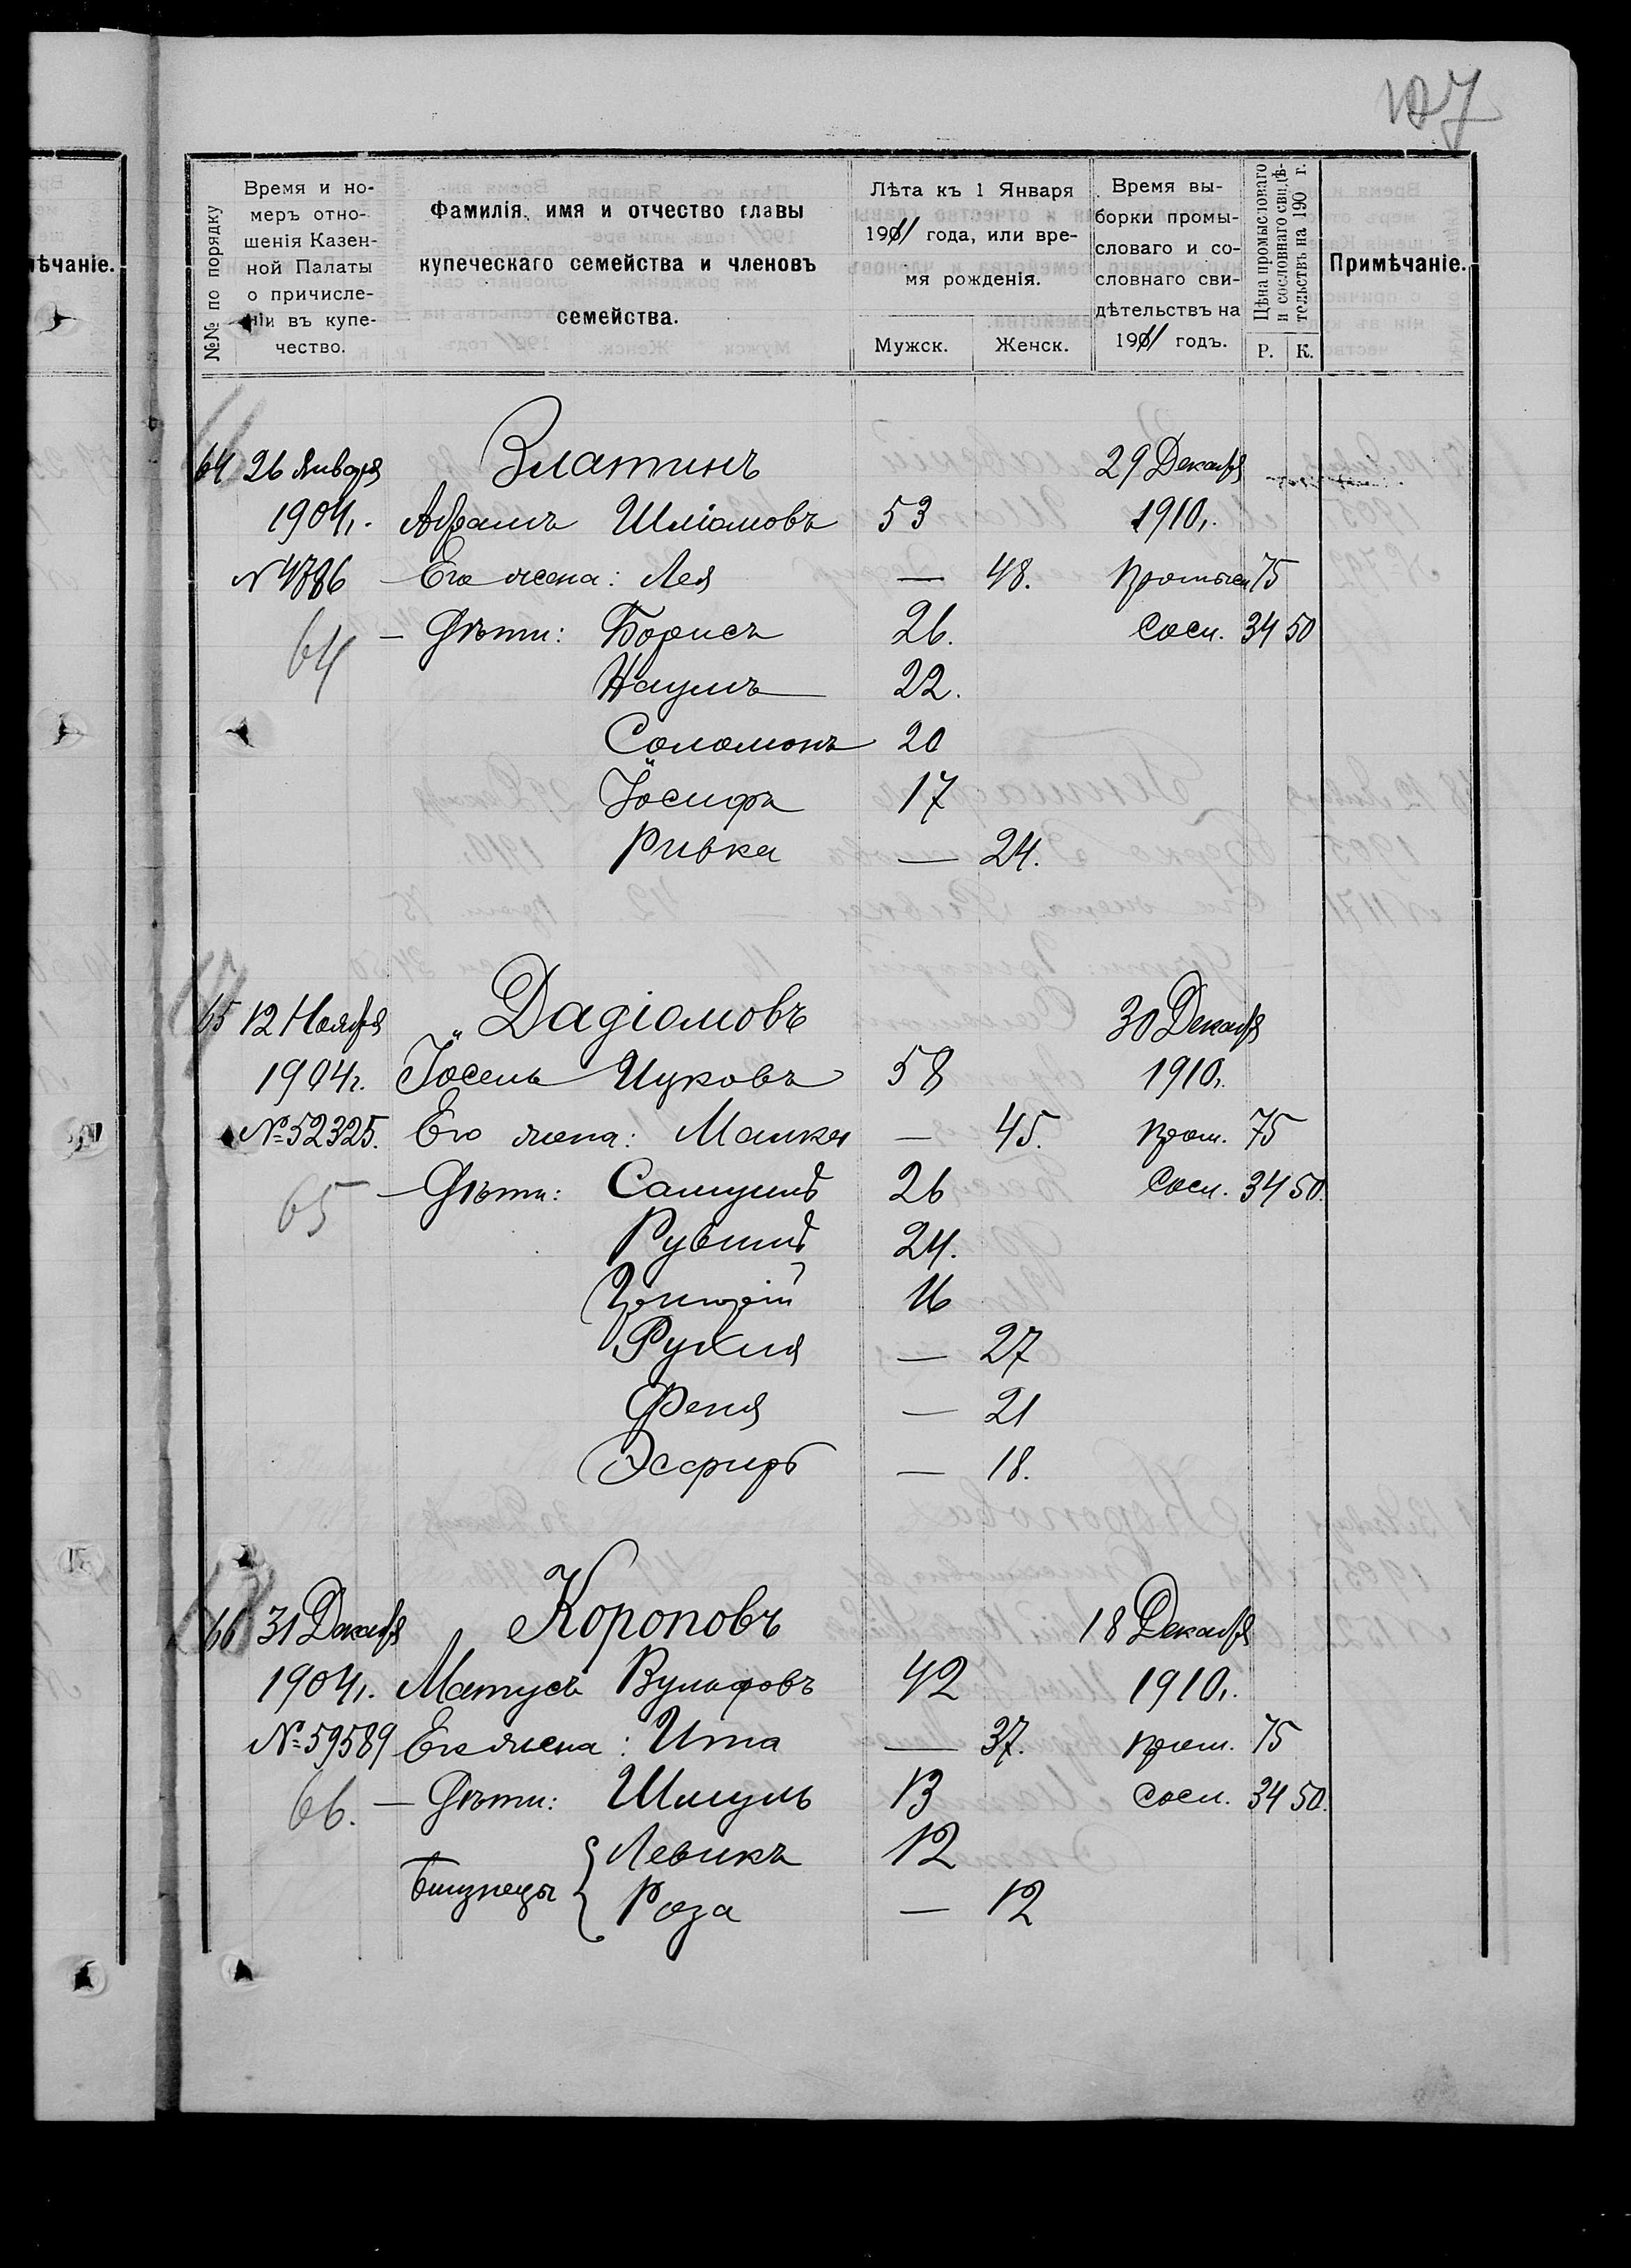 107
№№ по порядку
Время и но-
меръ отно-
шенія Казен-
ной Палаты
о причисле-
ніи въ купе-
чество.
Фамилія, имя и отчество главы
купеческаго семейства и членовъ
семейства.
Лѣта къ 1 Января
1911 года, или вре-
мя рожденія.
Мужск. Женск.
Время вы-
борки промы-
словаго и со-
словнаго сви-
дѣтельствъ на
1911 годъ.
Цѣна промысловаго
и сословнаго свидѣ-
тельствъ на 190 г.
Р. К.
Примѣчаніе.
ѣчаніе.
64 26 Января Златинъ 29 Декабря
1904г. Абрамъ Шліомовъ 53 1910г.
№ 4786 — Его жена: Лея — 48. Промысл 75
64 — Дѣти: Борисъ 26. Сосл. 34 50
Наумъ 22.
Соломонъ 20
Іосифъ 17
Ривка — 24.
65 12 Ноября Дадіомовъ 30 Декабря
1904г. Іосель Ицковъ 58 1910г.
№ 52325. Его жена: Малка — 45. Пром. 75
65 — Дѣти: Самуилъ 26 Сосл. 34 50.
Рувимъ 24.
16
Рухля — 27
Феня — 21
Эсфирь — 18.
66 31 Декабря Короповъ 18 Декабря
1904г. Матусъ Вульфовъ 42 1910г.
№ 59589 Его жена: Ита — 37. Пром. 75
66. — Дѣти: Шмуль 13 Сосл. 34 50.
Близнецы { Левикъ 12
Роза — 12